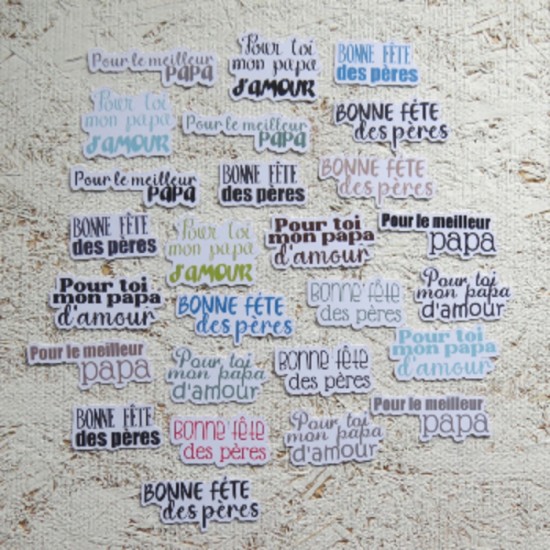 Pour le meilleur
PAPA
Pour toi
mon papa
d'AMOUR
BONNE FÊTE
des pères
Pour toi
mon papa
d'AMOUR
Pour le meilleur
PAPA
BONNE FÊTE
des pères
Pour le meilleur
PAPA
BONNE FÊTE
des pères
BONNE FÊTE
des pères
BONNE FÊTE
des pères
Pour toi
mon papa
d'AMOUR
Pour toi
mon papa
d'amour
Pour le meilleur
papa
Pour toi
mon papa
d'amour
BONNE FÊTE
des pères
BONNE fête
des pères
Pour toi
mon papa
d'amour
Pour le meilleur
papa
Pour toi
mon papa
d'amour
BONNE fête
des pères
Pour toi
mon papa
d'amour
BONNE FÊTE
des pères
BONNE fête
des pères
Pour toi
mon papa
d'amour
Pour le meilleur
papa
BONNE FÊTE
des pères